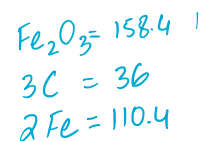 Fe₂O₃= 158.4
3C = 36
2Fe = 110.4